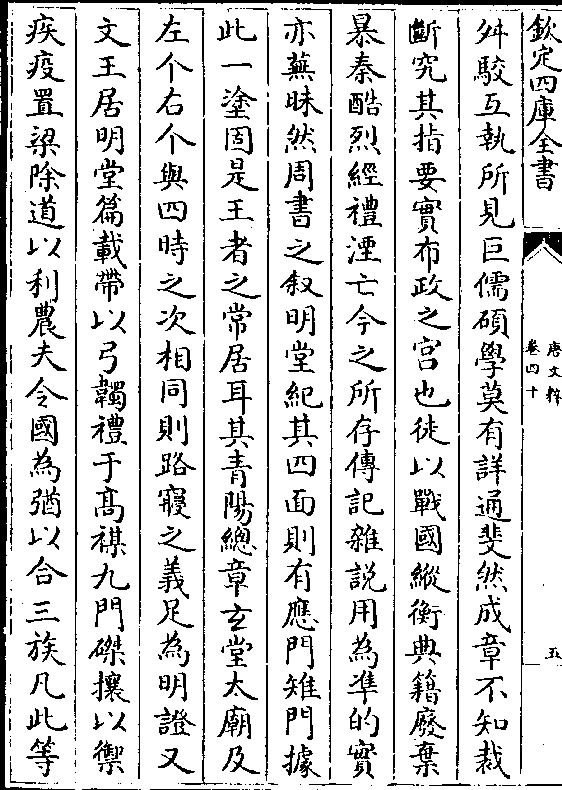 欽定四庫全書
唐文粹
卷四十
五
舛駮互執所見巨儒碩學莫有詳通斐然成章不知裁
斷究其指要實布政之宮也徒以戰國縱衡典籍廢棄
暴秦酷烈經禮湮亡今之所存傳記雜說用為準的實
亦蕪昧然周書之叙明堂紀其四面則有應門雉門據
此一塗固是王者之常居耳其青陽總章玄堂太廟及
左个右个與四時之次相同則路寢之義足為明證又
文王居明堂篇載帶以弓韣禮于髙禖九門磔攘以禦
疾疫置梁除道以利農夫令國為酒以合三族凡此等